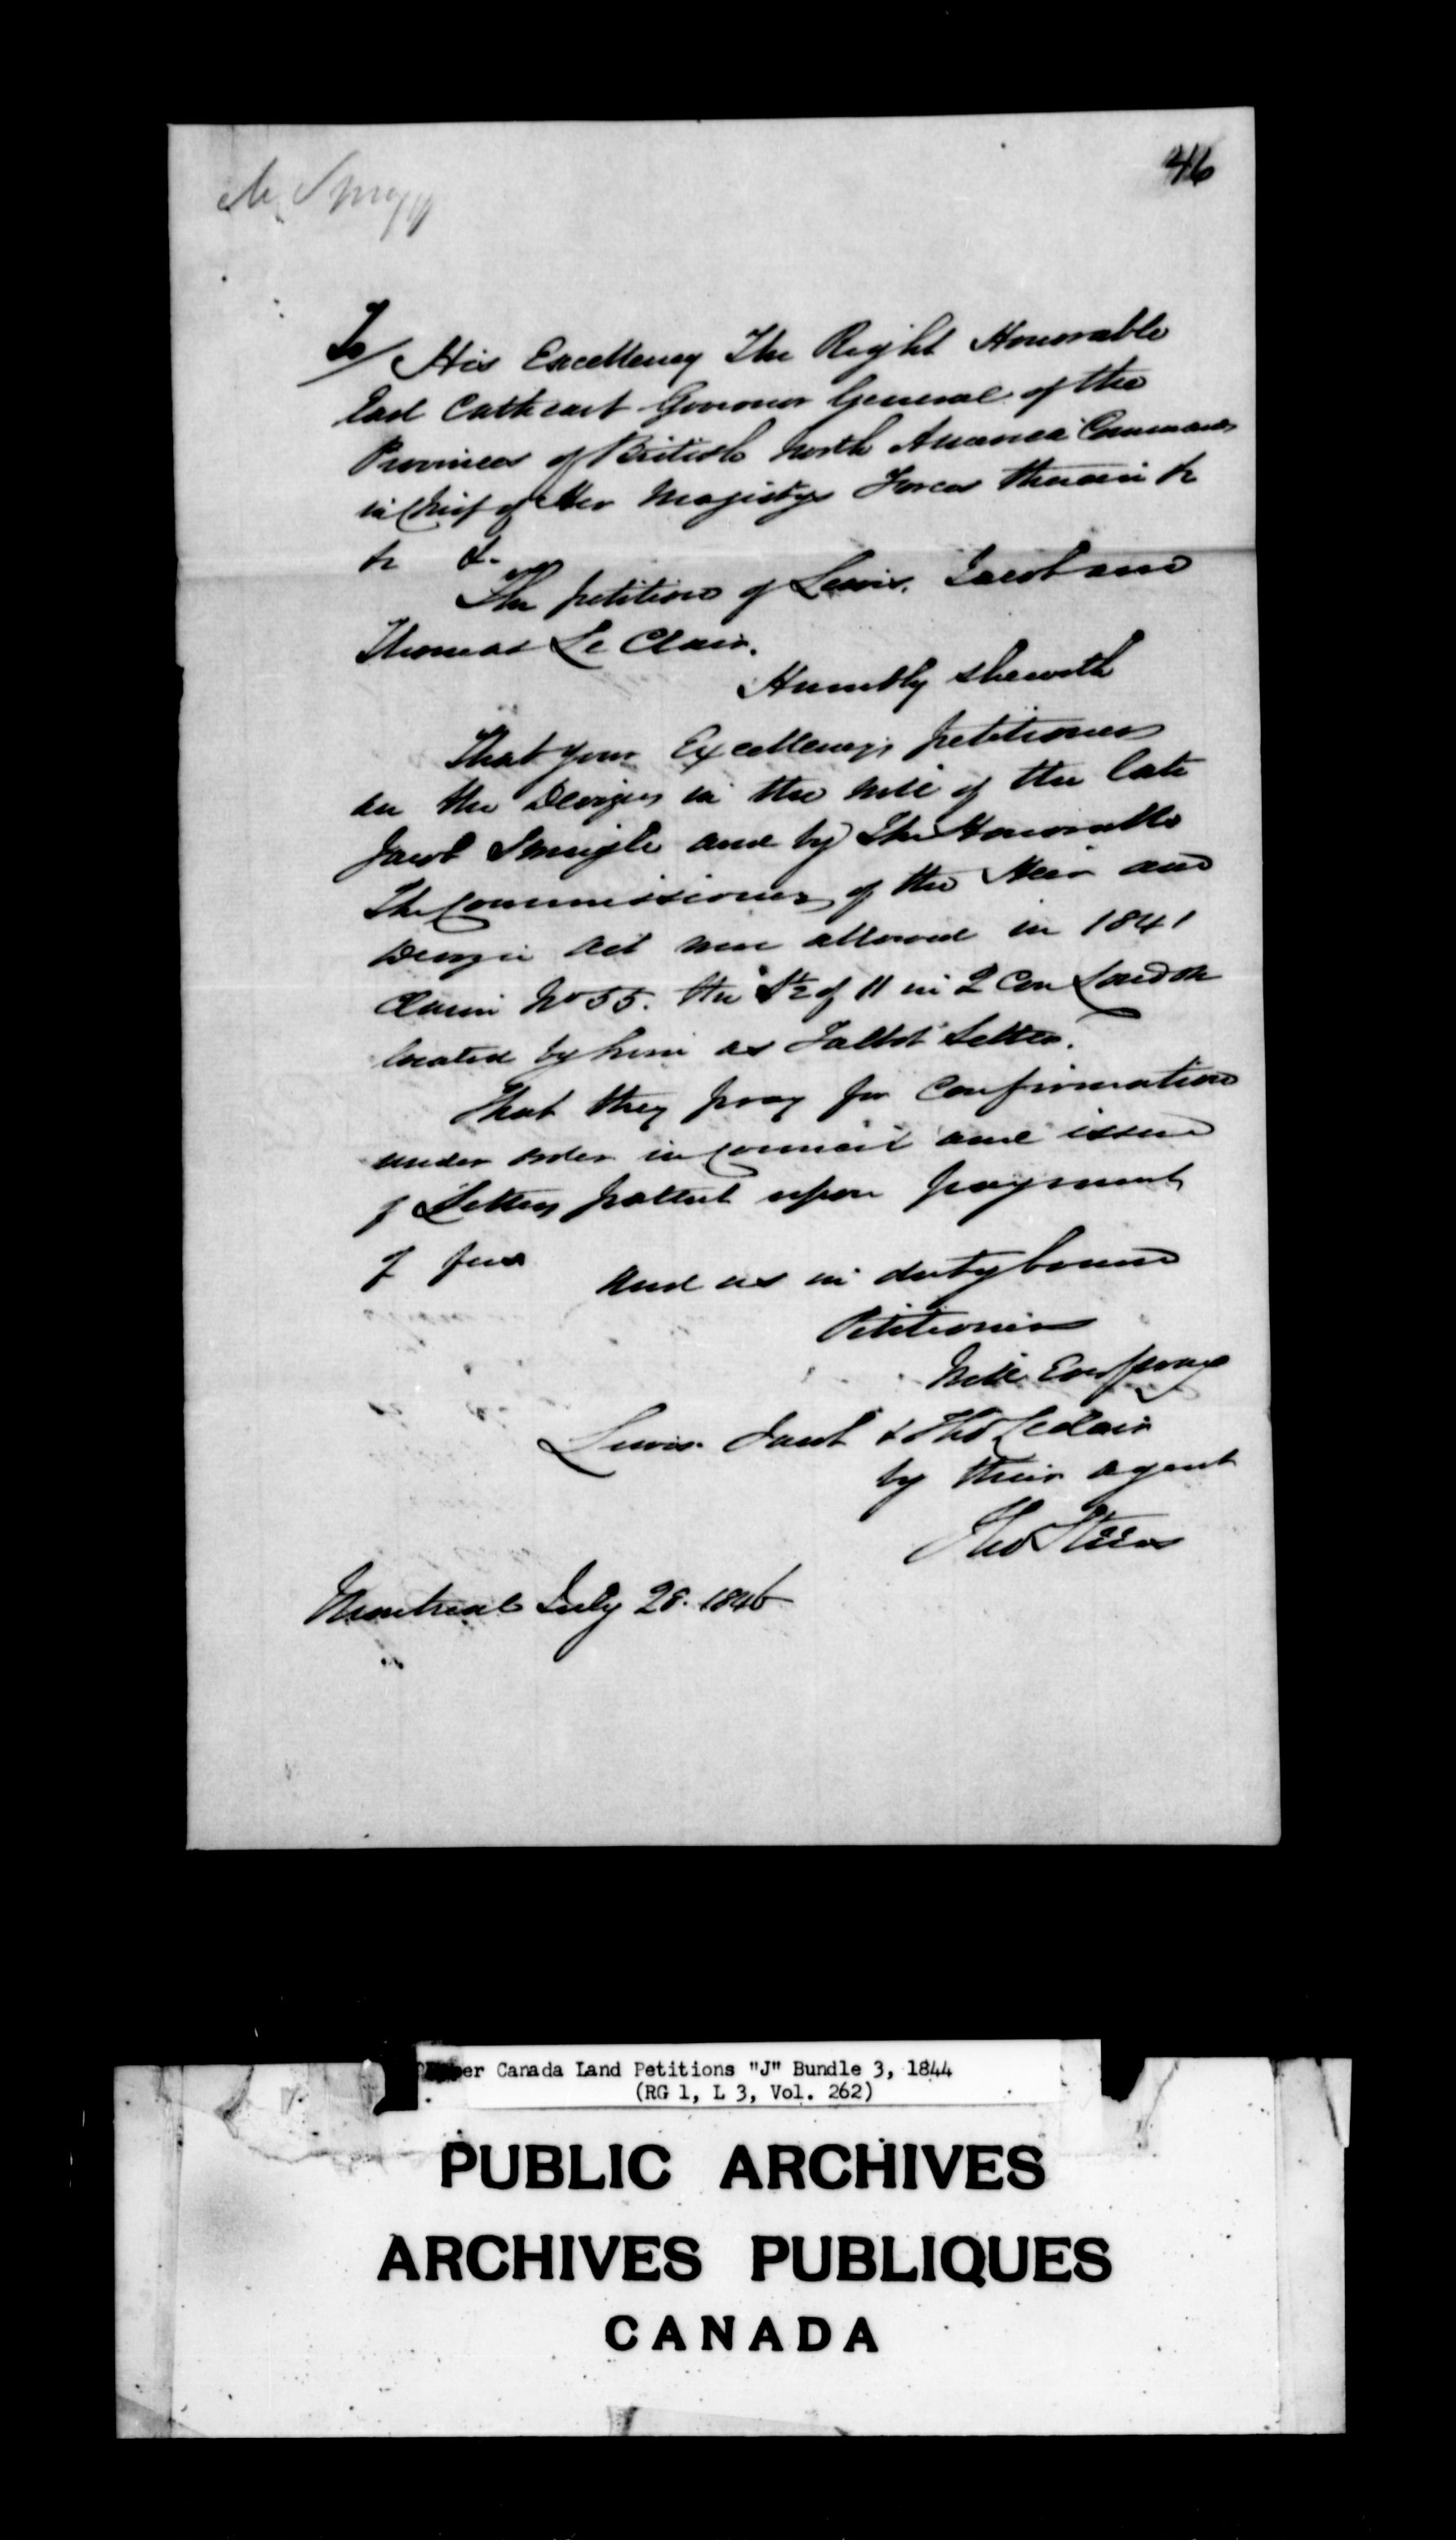 46
To/ His Excellency The Right Honorable
Earl Cathcart Governor General of the
Provinces of British North America Commander
in Chief of Her Majestys Forces therein &c
&c &c
The petition of Lewis, Jacob and
Thomas Le Clair.
Humbly sheweth
That your Excellency's petitioners
are the Devisees in the Will of the late
Jacob and by The Honorable
The Commissioners of the Heir and
Devisee Act were allowed in 1841
Claim No 55. the S½ of 11 in 2 Con London
located by him as Talbot Settler.
That they pray for Confirmation
under order in Council and issue
of Letters patent upon payment
of fees
And as in duty bound
Petitioners
Will Ever pray
Lewis Jacob & Thos Leclair
by their agent
Thos
Montreal July 28. 1846
per Canada Land Petitions "J" Bundle 3, 1844
(RG 1, L 3, Vol. 262)
PUBLIC ARCHIVES
ARCHIVES PUBLIQUES
CANADA